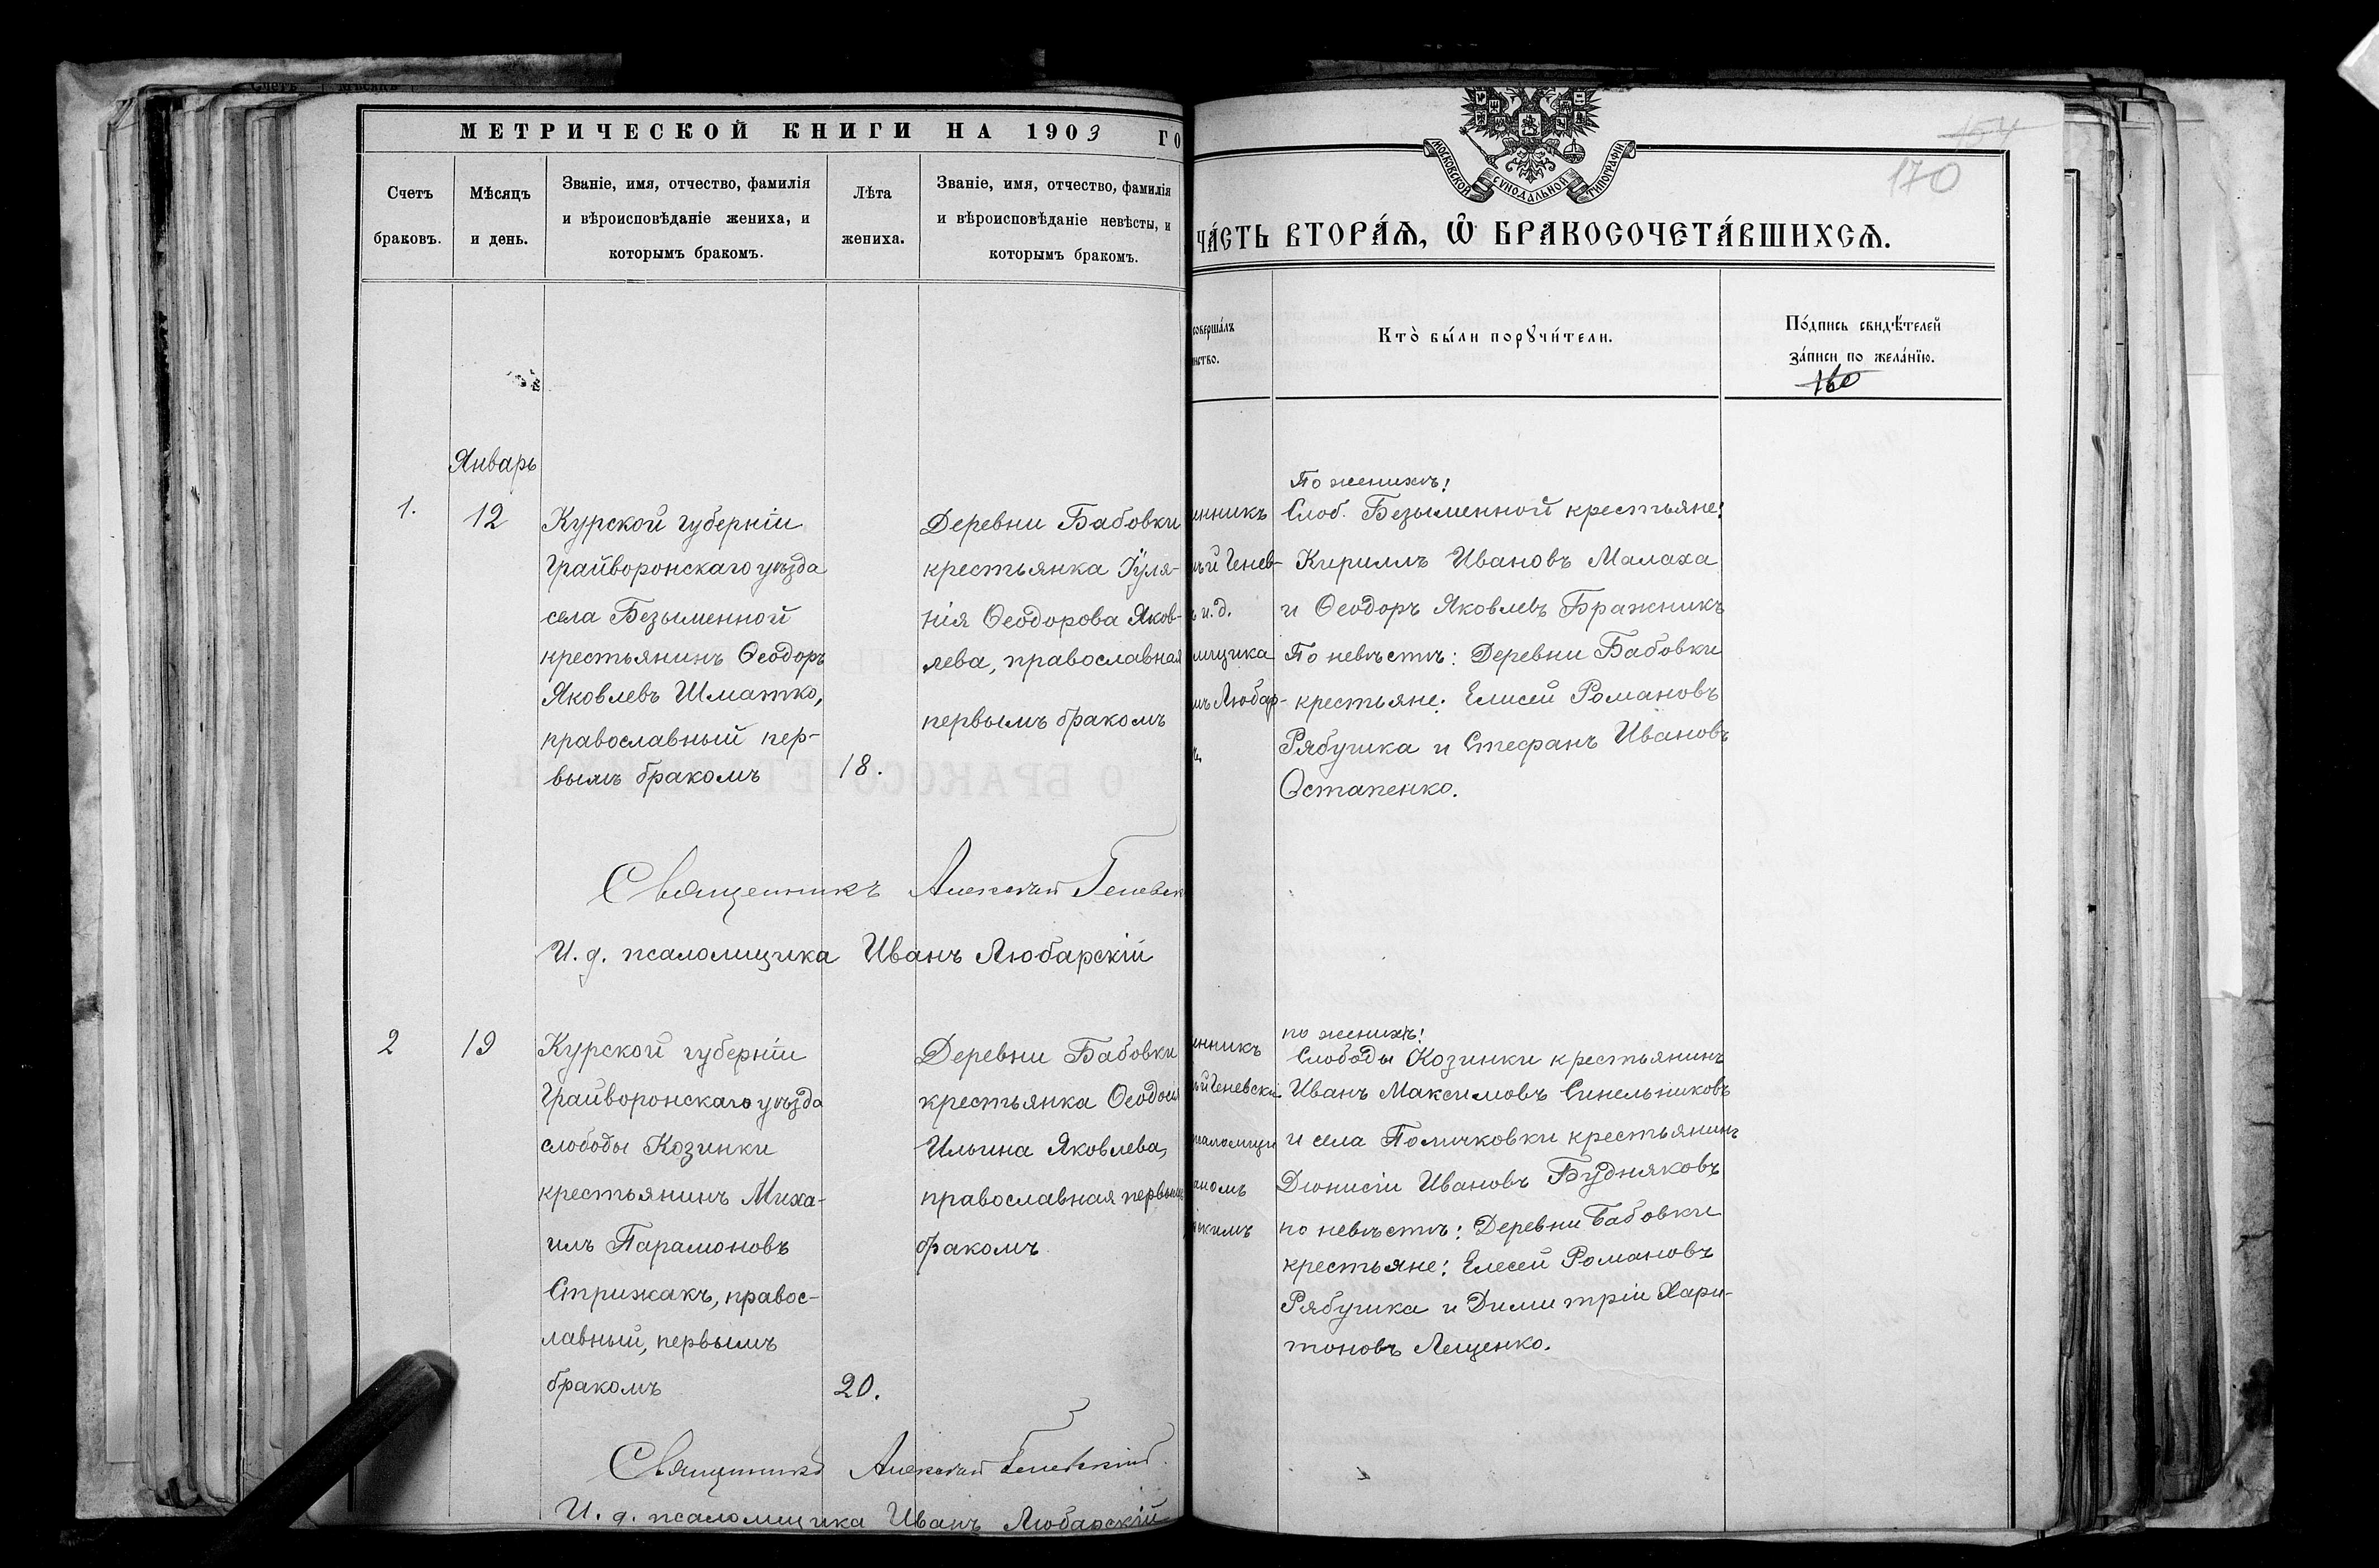 МЕТРИЧЕСКОЙ КНИГИ НА 1903 ГО
Счетъ браковъ.
Мѣсяцъ и день.
Званіе, имя, отчество, фамилія
и вѣроисповѣданіе жениха, и
которымъ бракомъ.
Лѣта жениха.
Званіе, имя, отчество, фамилія
и вѣроисповѣданіе невѣсты, и
которымъ бракомъ.
Январь
1.
12
Курской губерніи
Грайворонскаго уѣзда
села Безыменной
крестьянинъ Ѳеодоръ
Яковлевъ Шматко,
православный пер-
вымъ бракомъ
18.
Деревни Бабовки
крестьянка Іуля-
нія Ѳеодорова Яков-
лева, православная
первымъ бракомъ
Священникъ Алексѣй Геневск
И. д. псаломщика Иванъ Любарскій
2
19
Курской губерніи
Грайворонскаго уѣзда
слободы Козинки
крестьянинъ Миха-
илъ Парамоновъ
Стрижакъ, правос-
лавный, первымъ
бракомъ
20.
Деревни Бабовки
крестьянка Ѳеодосія
Ильина Яковлева,
православная первымъ
бракомъ
Священникъ Алексѣй Геневскій
И. д. псаломщика Иванъ Любарскій
МОСКОВСКОЙ СѴНОДАЛЬНОЙ ТИПОГРАФІИ
154
170
ЧА́СТЬ ВТОРА́Ѧ, Ѽ БРАКОСОЧЕТА́ВШИХСѦ.
совершáлъ
нство.
Кто̀ бы́ли порꙋчи́тели.
По́дпись свидѣ́телей
за́писи по жела́нїю.
160
енникъ
ѣй Генев-
ъ и. д.
мщика
нъ Любар-
По женихѣ:
Слоб. Безыменной крестьяне:
Кириллъ Ивановъ Малаха
и Ѳеодоръ Яковлевъ Бражникъ
По невѣстѣ: Деревни Бабовки
крестьяне: Елисей Романовъ
Рябушка и Стефанъ Ивановъ
Остапенко.
енникъ
ѣй Геневскій
псаломщи
аномъ
скимъ
по женихѣ:
Слободы Козинки крестьянинъ
Иванъ Максимовъ Синельниковъ
и села Поличковки крестьянинъ
Діонисій Ивановъ Будняковъ
по невѣстѣ: Деревни Бабовки
крестьяне: Елесей Романовъ
Рябушка и Димитрій Хари-
тоновъ Лещенко.